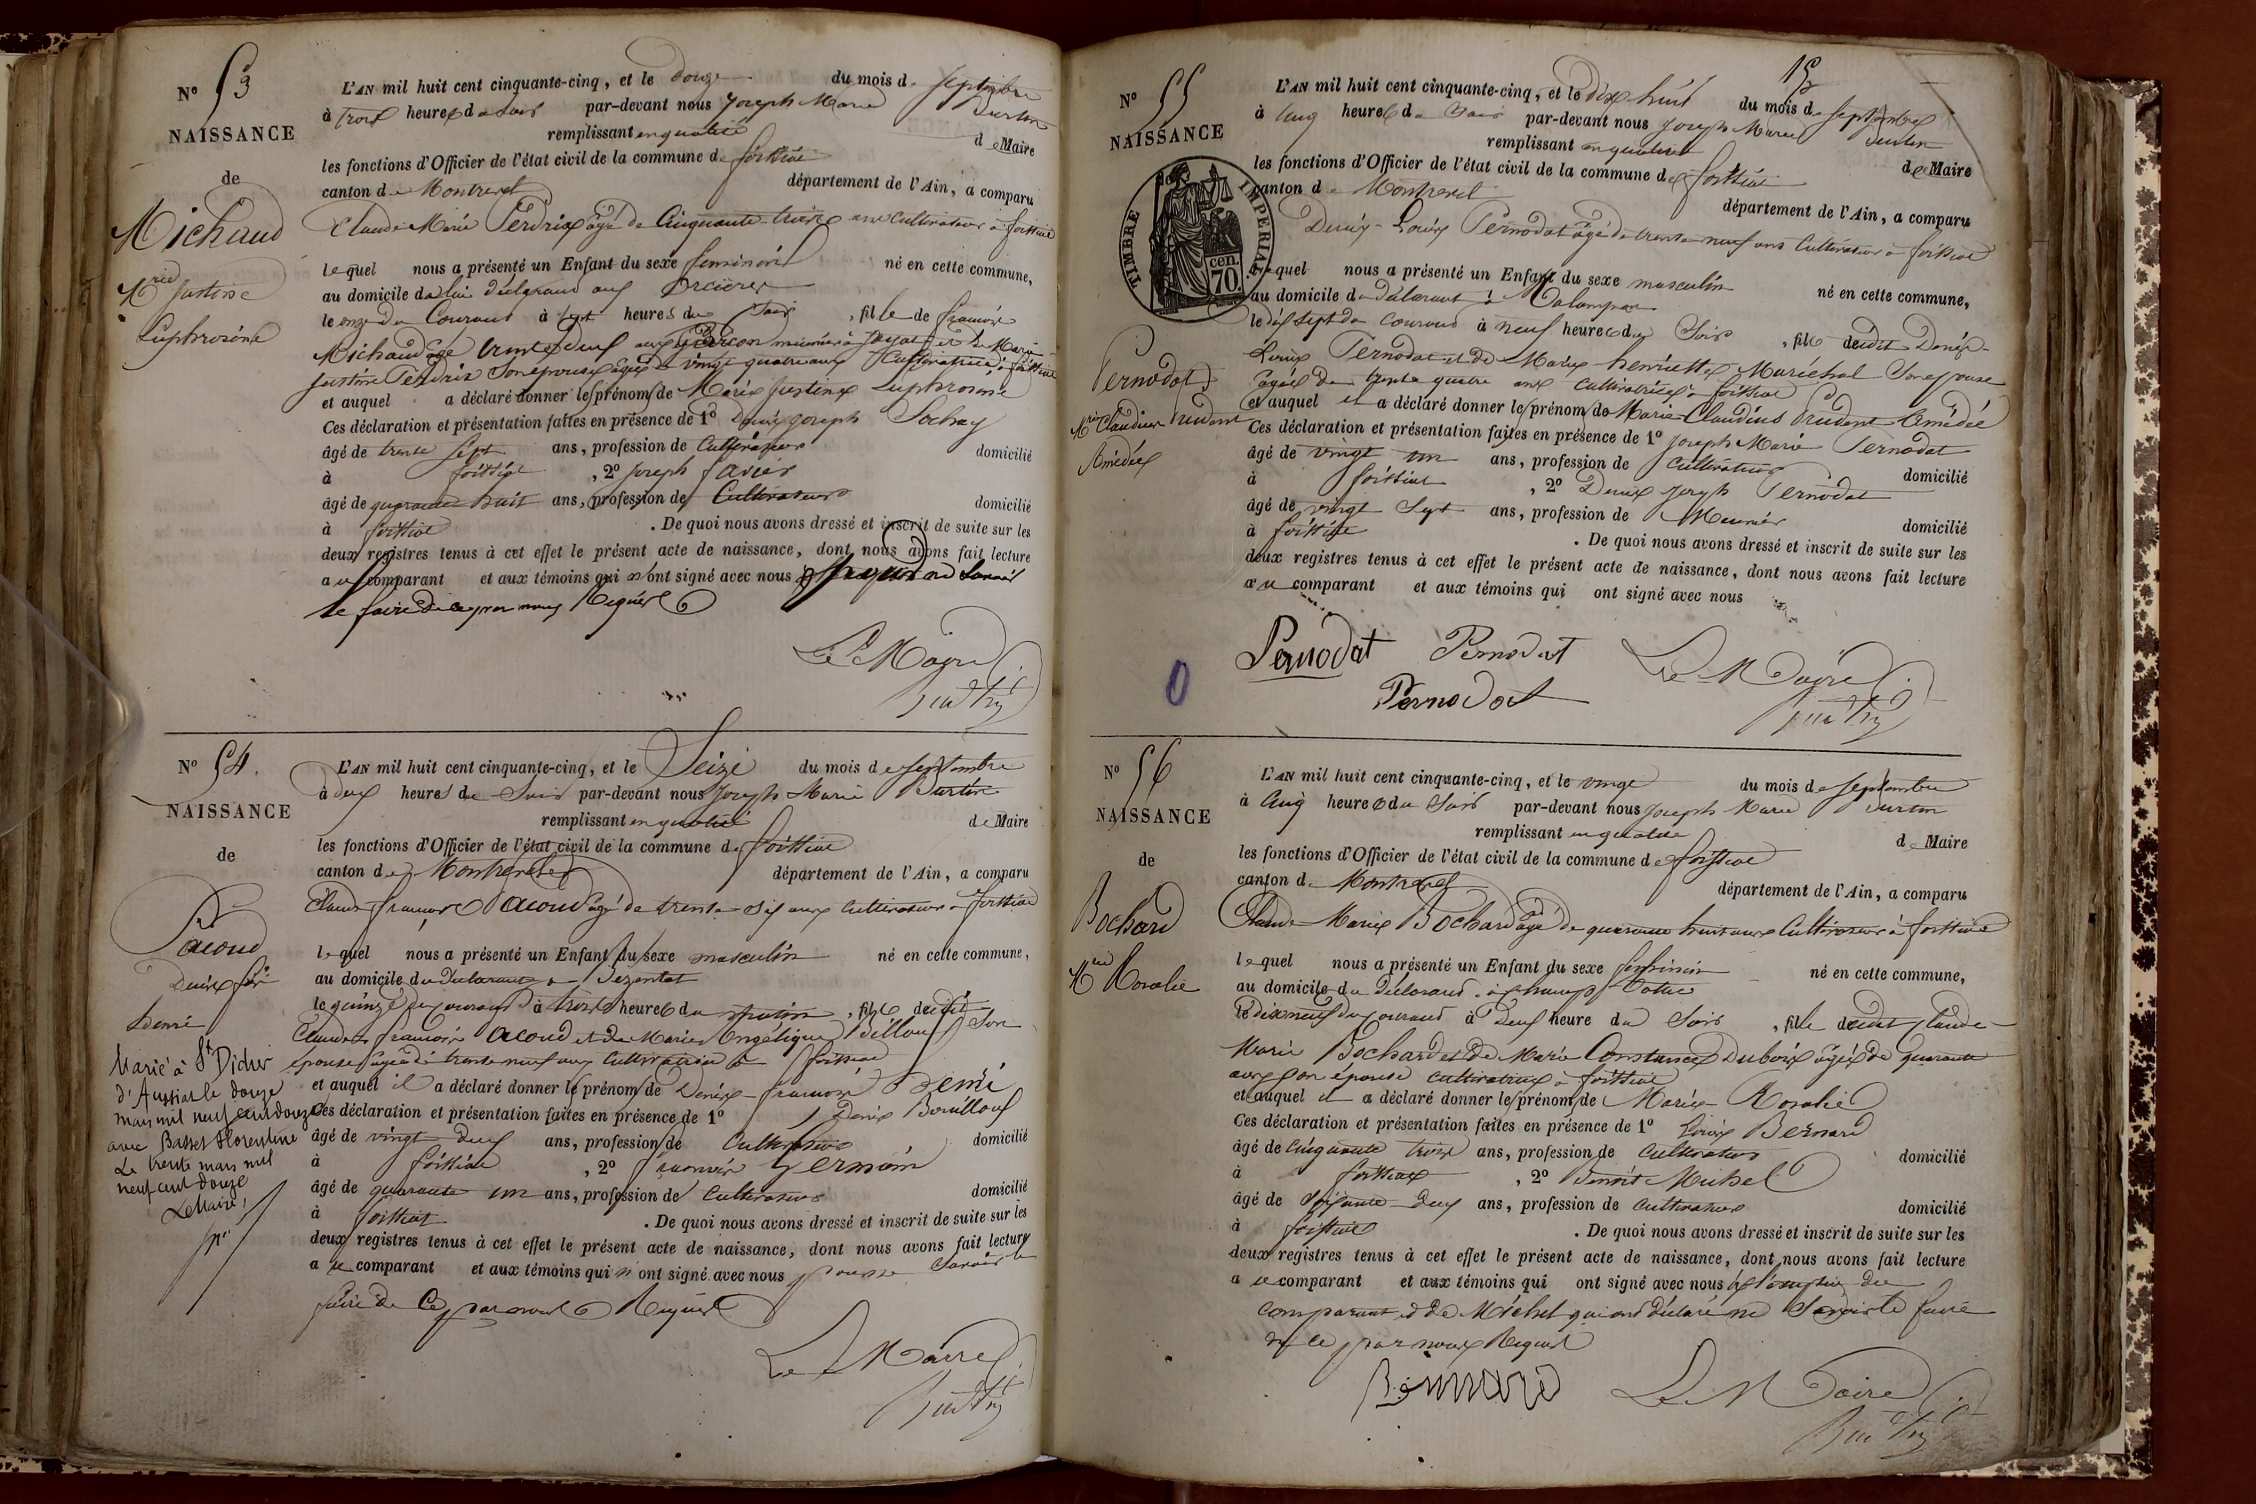 N° 53
NAISSANCE
de
Michaud
Mrie Justine
Euphrosine
L'AN mil huit cent cinquante-cinq, et le douze du mois de septembre
à trois heures du soir par-devant nous Joseph Marie Burtin
remplissant en qualité de Maire
les fonctions d'Officier de l'état civil de la commune de foissiat
canton de Montrevel département de l'Ain, a comparu
Claude Marie Perdrix âgé de Cinquante-trois ans cultivateur à foissiat
lequel nous a présenté un Enfant du sexe féminin né en cette commune,
au domicile de lui déclarant aux
le onze du Courant à sept heures du Soir, fille de françois
Michaud âgé trente deux ans et de Marie
Justine Perdrix Son épouse âgée de vingt quatre ans Cultivatrice à foissiat
et auquel a déclaré donner les prénoms de Marie Justine Euphrosine
Ces déclaration et présentation faites en présence de 1° Denis Joseph Sochay
âgé de trente sept ans, profession de Cultivateur domicilié
à foissiat, 2° Joseph favier
âgé de quarante huit ans, profession de Cultivateur domicilié
à foissiat. De quoi nous avons dressé et inscrit de suite sur les
deux registres tenus à cet effet le présent acte de naissance, dont nous avons fait lecture
au comparant et aux témoins qui n'ont signé avec nous pour ne Savoir
le faire de ce par nous Requis
Le Maire
Burtin
N° 54.
NAISSANCE
de
Pacoud
Denis fois
Rémi
Marié à St Didier
d'Aussiat le douze
mars mil neuf cent douze
avec Basset Florentine
Le trente mars mil
neuf cent douze
Le Maire,
L'AN mil huit cent cinquante-cinq, et le Seize du mois de septembre
à deux heures du Soir par-devant nous Joseph Marie Burtin
remplissant en qualité de Maire
les fonctions d'Officier de l'état civil de la commune de foissiat
canton de Montrevel département de l'Ain, a comparu
Claude françois Pacoud âgé de trente Six ans Cultivateur à foissiat
lequel nous a présenté un Enfant du sexe masculin né en cette commune,
au domicile du déclarant à
le quinze du courant à trois heures du matin, fils dudit
Claude françois Pacoud et de Marie Angélique Son
épouse âgée de trente neuf ans cultivatrice à foissiat
et auquel il a déclaré donner les prénoms de Denis françois Rémi
Ces déclaration et présentation faites en présence de 1° Denis Bouilloux
âgé de vingt Deux ans, profession de Cultivateur domicilié
à foissiat, 2° françois Germain
âgé de quarante un ans, profession de Cultivateur domicilié
à foissiat. De quoi nous avons dressé et inscrit de suite sur les
deux registres tenus à cet effet le présent acte de naissance, dont nous avons fait lecture
au comparant et aux témoins qui n'ont signé avec nous pour ne Savoir le
faire de Ce par nous Requis
Le Maire
Burtin
15
N° 55
NAISSANCE
TIMBRE IMPERIAL
70 cen.
Pernodat
Mie Claudius Prudent
Amédée
L'AN mil huit cent cinquante-cinq, et le dix huit du mois de septembre
à cinq heures du Soir par-devant nous Joseph Marie Burtin
remplissant en qualité de Maire
les fonctions d'Officier de l'état civil de la commune de foissiat
canton de Montrevel département de l'Ain, a comparu
Denis-Louis Pernodat âgé de trente neuf ans Cultivateur à foissiat
lequel nous a présenté un Enfant du sexe masculin né en cette commune,
au domicile du déclarant à
le dix sept du courant à neuf heures du Soir, fils dudit Denis-
Louis Pernodat et de Marie henriette Maréchal Son épouse
âgée de trente quatre ans cultivatrice à foissiat
et auquel il a déclaré donner les prénoms de Marie Claudius Prudent Amédée
Ces déclaration et présentation faites en présence de 1° Joseph Marie Pernodat
âgé de vingt un ans, profession de cultivateur domicilié
à foissiat, 2° Denis Joseph Pernodat
âgé de vingt Sept ans, profession de Meunier domicilié
à foissiat. De quoi nous avons dressé et inscrit de suite sur les
deux registres tenus à cet effet le présent acte de naissance, dont nous avons fait lecture
au comparant et aux témoins qui ont signé avec nous
Pernodat Pernodat Le Maire
Pernodat Burtin
N° 56
NAISSANCE
de
Bochard
Mie Rosalie
L'AN mil huit cent cinquante-cinq, et le vingt du mois de septembre
à cinq heures du Soir par-devant nous Joseph Marie Burtin
remplissant en qualité de Maire
les fonctions d'Officier de l'état civil de la commune de foissiat
canton de Montrevel département de l'Ain, a comparu
Claude Marie Bochard âgé de quarante trois ans Cultivateur à foissiat
lequel nous a présenté un Enfant du sexe féminin né en cette commune,
au domicile du déclarant à
le dix neuf du courant à Deux heure du Soir, fille dudit Claude-
Marie Bochard et de Marie Constance Dubois âgée de quarante
ans son épouse cultivatrice à foissiat
et auquel il a déclaré donner les prénoms de Marie Rosalie
Ces déclaration et présentation faites en présence de 1° Louis Bernard
âgé de Cinquante trois ans, profession de Cultivateur domicilié
à foissiat, 2° Benoit Michel
âgé de Soixante-Deux ans, profession de Cultivateur domicilié
à foissiat. De quoi nous avons dressé et inscrit de suite sur les
deux registres tenus à cet effet le présent acte de naissance, dont nous avons fait lecture
au comparant et aux témoins qui ont signé avec nous à l'exception du
comparant et de Michel qui ont déclaré ne Savoir le faire
de ce par nous Requis
Bernard Le Maire
Burtin